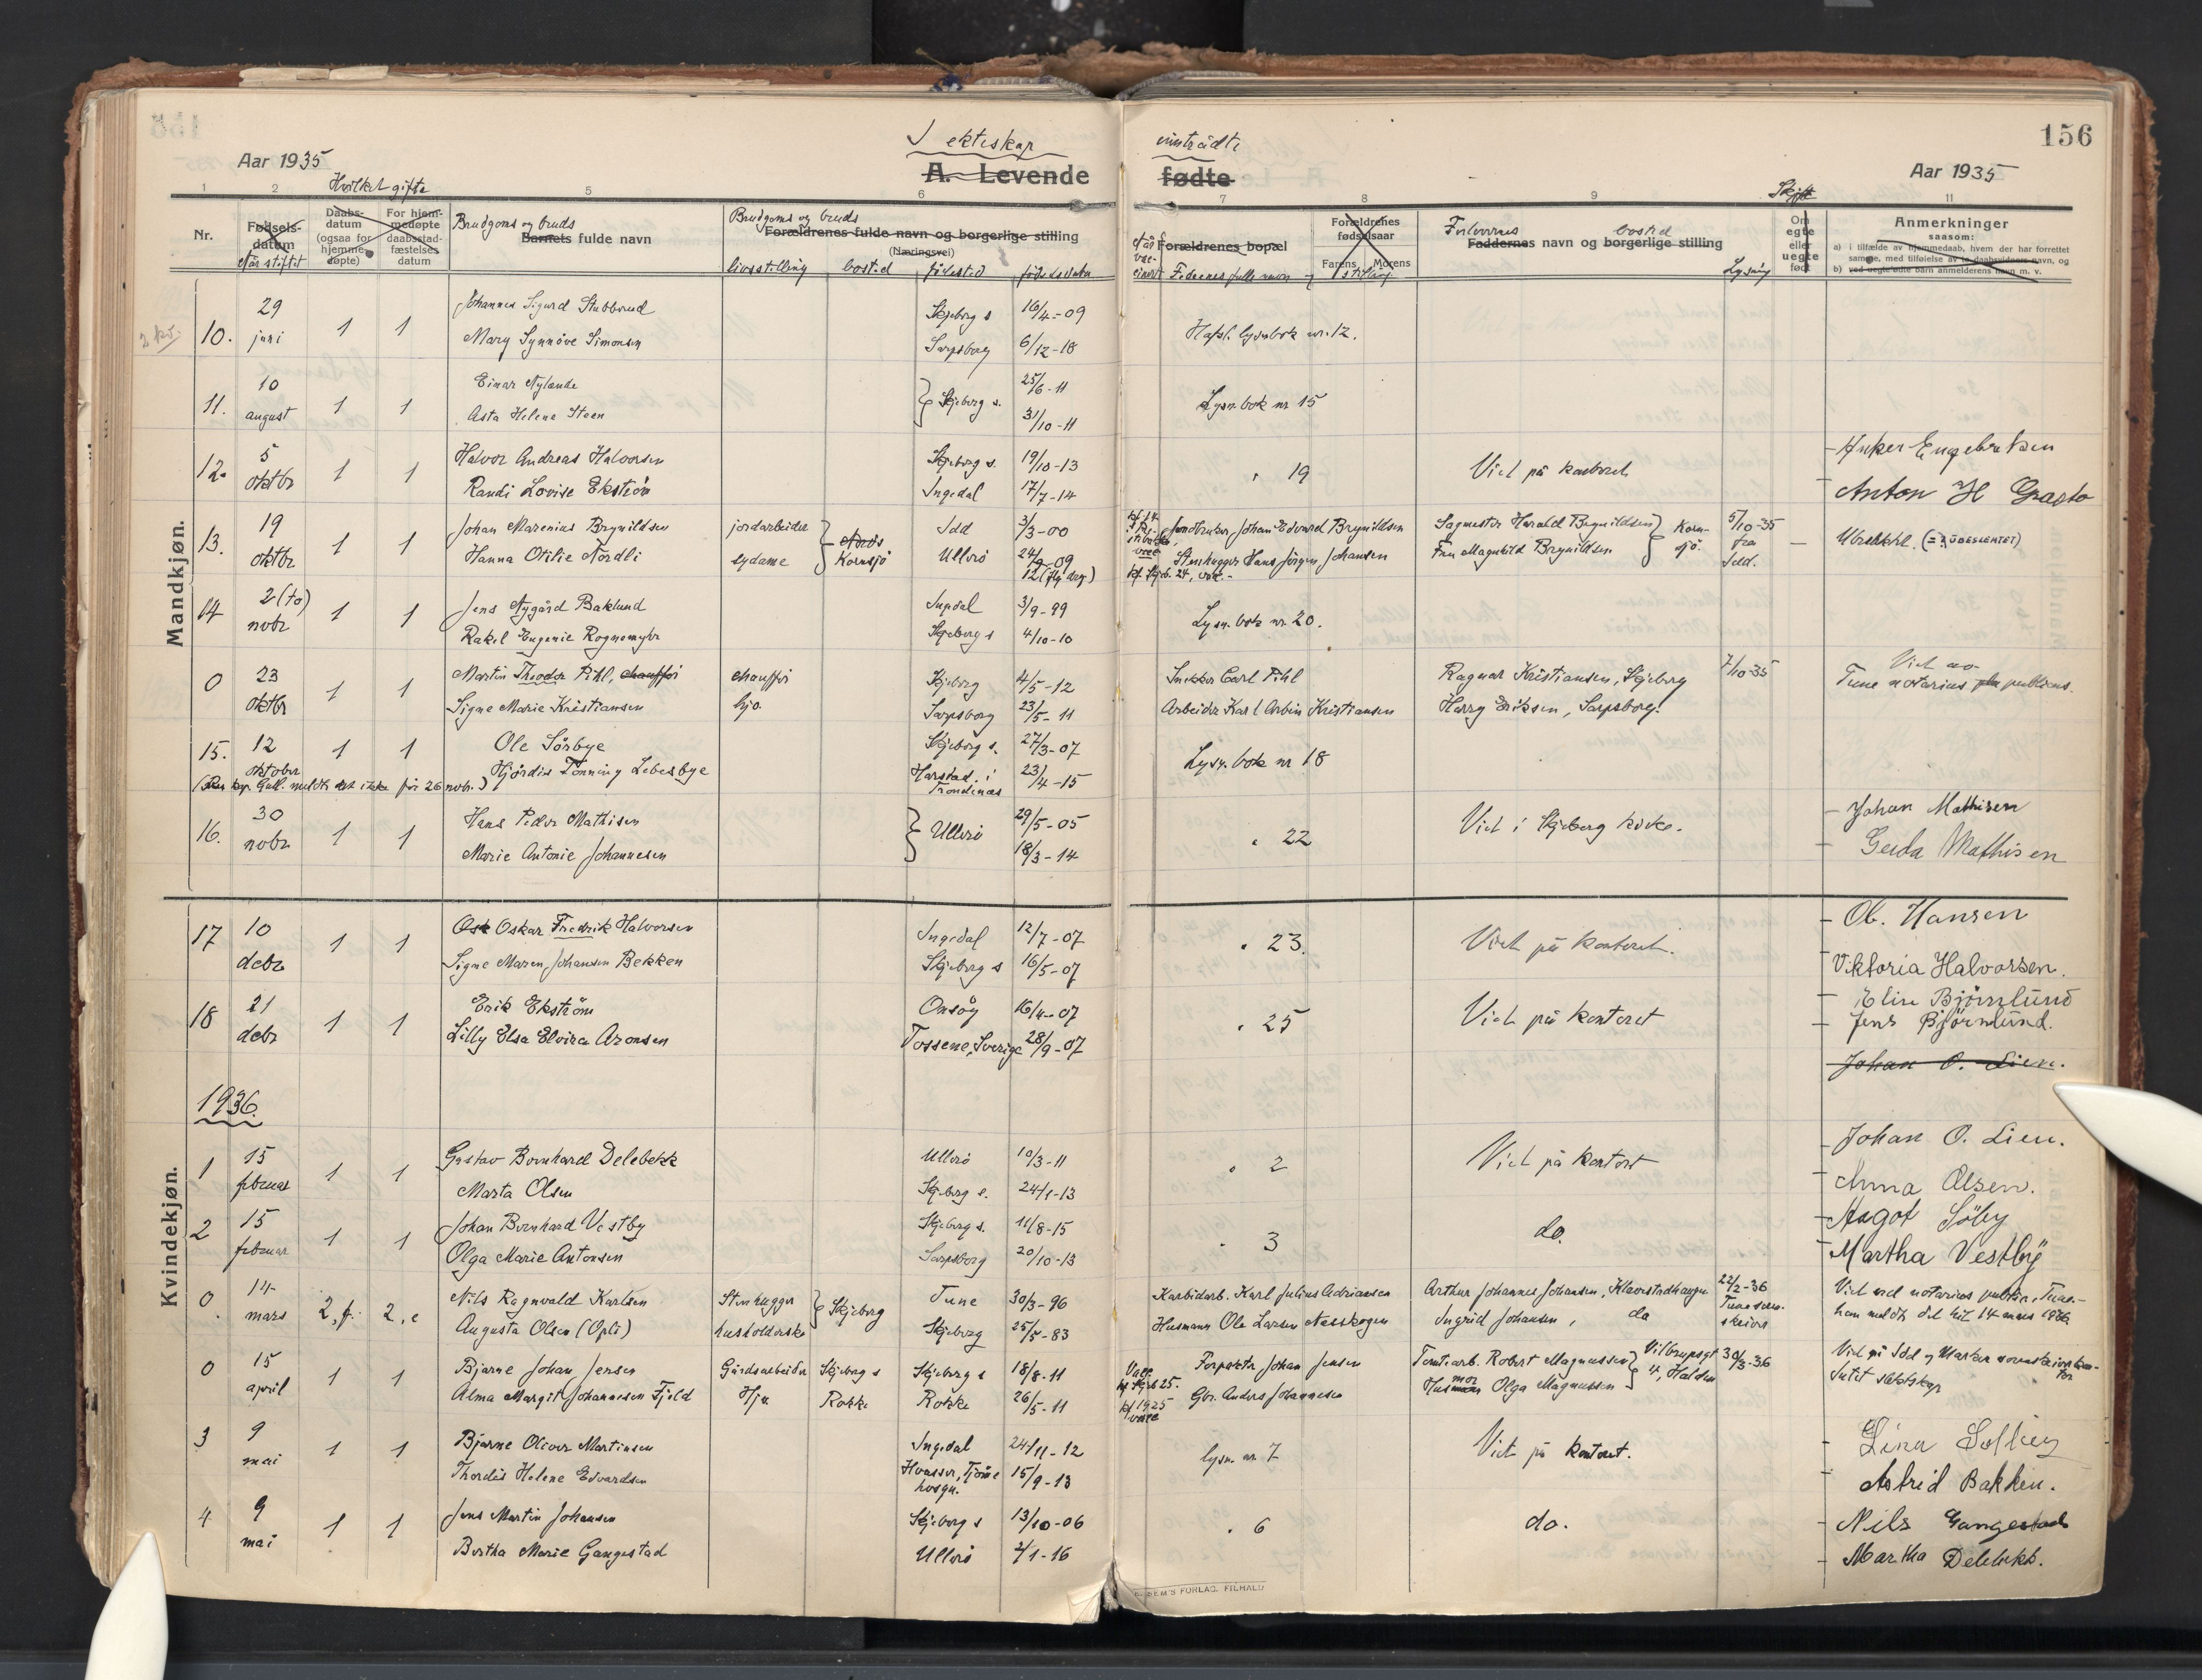 156
Aar 1935
I ekteskap
inntrådte
Aar 1935
A. Levende
fødte
Hvilket gifte
1 2 5 6 7 8 9 11
Nr.
Fødsels-
datum
Når stiftet
Daabs-
datum
(ogsaa for
hjemme-
døpte)
For hjem-
medøpte
daabsstad-
fæstelses
datum
Brudgoms og bruds
Barnets fulde navn
Brudgoms og bruds
Forældrenes fulde navn og borgerlige stilling
(Næringsvei)
livsstilling bosted fødested fødselsdatum
Forældrenes bopæl
Fedrenes fulle navn og stilling
Forældrenes
fødselsaar
Farens Morens
Forlovernes bosted
Faddernes navn og borgerlige stilling
Lysning
Om
egte
eller
uegte
født
Anmerkninger
saasom:
a) i tilfælde av hjemmedaab, hvem der har forrettet
samme, med tilføielse av to daabsvidners navn, og
b) ved uegte fødte barn anmelderens navn m. v.
Mandkjøn.
10. 29 juni 1 1 Johannes Sigurd Stubberud Skjeberg s 16/4-09
Mary Synnöve Simonsen Sarpsborg 6/12-18 Hafsl. lysnbok nr. 12.
11. 10 august 1 1 Einar Nylande Skjeberg s. 25/6-11 Lysn. bok nr 15
Asta Helene Steen 31/10-11
12. 5 oktbr 1 1 Halvor Andreas Halvorsen Skjeberg s. 19/10-13 " 19 Viet på kontoret
Randi Lovise Ekström Ingedal 17/7-14 Anton H Grasto
13. 19 oktbr 1 1 Johan Marenius Brynildsen jordarbeider Idd 3/3-00 Johan Edvard Brynildsen Sagmester Harald Brynildsen Kornsjö. 5/10-35 fra Idd.
Hanna Otilie Nordli sydame Kornsjö Ullerö 24/9-09 Stenhugger Hans Jörgen Johansen Fru Magnhild Brynildsen
14 2(to) novbr 1 1 Jens Nygård Baklund Ingedal 3/9-99 Lysn. bok nr 20.
Rakel Eugenie Rognemyhr Skjeberg s 4/10-10
0 23 oktbr 1 1 Martin Theodor Pihl, chauffør chauffør Skjeberg 4/5-12 Snekker Carl Pihl Ragnar Kristiansen, Skjeberg 7/10-35 Viet av
Signe Marie Kristiansen hjv. Sarpsborg 23/5-11 Arbeider Karl Arbin Kristiansen Harry Eriksen, Sarpsborg. Tune notarius publicus.
15. 12 oktober 1 1 Ole Sörbye Skjeberg s. 27/3-07 Lysn. bok nr 18
Hjördis Tönning Lebesbye Harstad i Trondenes 23/4-15
(Res. kap. Gull. meldte det ikke för 26 nov.)
16. 30 novbr 1 1 Hans Peder Mathisen Ullerö 29/5-05 " 22 Viet i Skjeberg kirke. Johan Mathisen
Marie Antonie Johannesen 18/3-14 Gerda Mathisen
17 10 debr 1 1 Osk Oskar Fredrik Halvorsen Ingedal 12/7-07 " 23. Viet på kontoret. Ob. Hansen
Signe Maren Johansen Bekken Skjeberg s 16/5-07 Viktoria Halvorsen.
18 21 debr 1 1 Erik Ekström Onsöy 16/4-07 " 25 Viet på kontoret Elise Björnlund
Lilly Elsa Elvira Aronsen Tossene, Sverige 28/9-07 Jens Björnlund.
Johan O. Lien.
1936.
Kvindekjøn.
1 15 februar 1 1 Gustav Bernhard Delebekk Ullerö 10/3-11 " 2 Viet på kontoret Johan O. Lien.
Marta Olsen Skjeberg s. 24/1-13 Anna Olsen.
2 15 februar 1 1 Johan Bernhard Vestby Skjeberg s. 11/8-15 " 3 do. Aagot Söby
Olga Marie Antonsen Sarpsborg 20/10-13 Martha Vestby
0. 14 mars 2, f. 2, e Nils Ragnvald Karlsen Stenhugger Skjeberg Tune 30/3-96 Karbidarb. Karl Julius Adriansen Arthur Johannes Johansen, Klavestadhaugen 22/2-36 Viet ved notarius publicus, Tune.
Augusta Olsen (Opli) husholderske Skjeberg 25/5-83 Husmann Ole Larsen Nesskogen Ingrid Johansen, do han meldte det hit 14 mars 1936
0 15 april 1 1 Bjarne Johan Jensen Gårdsarbeider Skjeberg s Skjeberg s 18/8-11 Forpakter Johan Jensen Tomtearb. Robert Magnussen Halden 30/3-36
Alma Margit Johannesen Fjeld Hjv. Rokke Rokke 26/5-11 Gbr. Anders Johannesen Husmor Olga Magnussen
3 9 mai 1 1 Bjarne Oliver Martinsen Ingedal 24/11-12 lysn. nr 7 Viet på kontoret. Lina Solli
Thordis Helene Edvardsen Hvasser, Tjöme 15/9-13 Astrid Bakken.
4 9 mai 1 1 Jens Martin Johansen Skjeberg s 13/10-06 " 6 do. Nils Gangestad
Bertha Marie Gangestad Ullerö 2/1-16 Martha Delebekk.
FORLAG. FILHALD